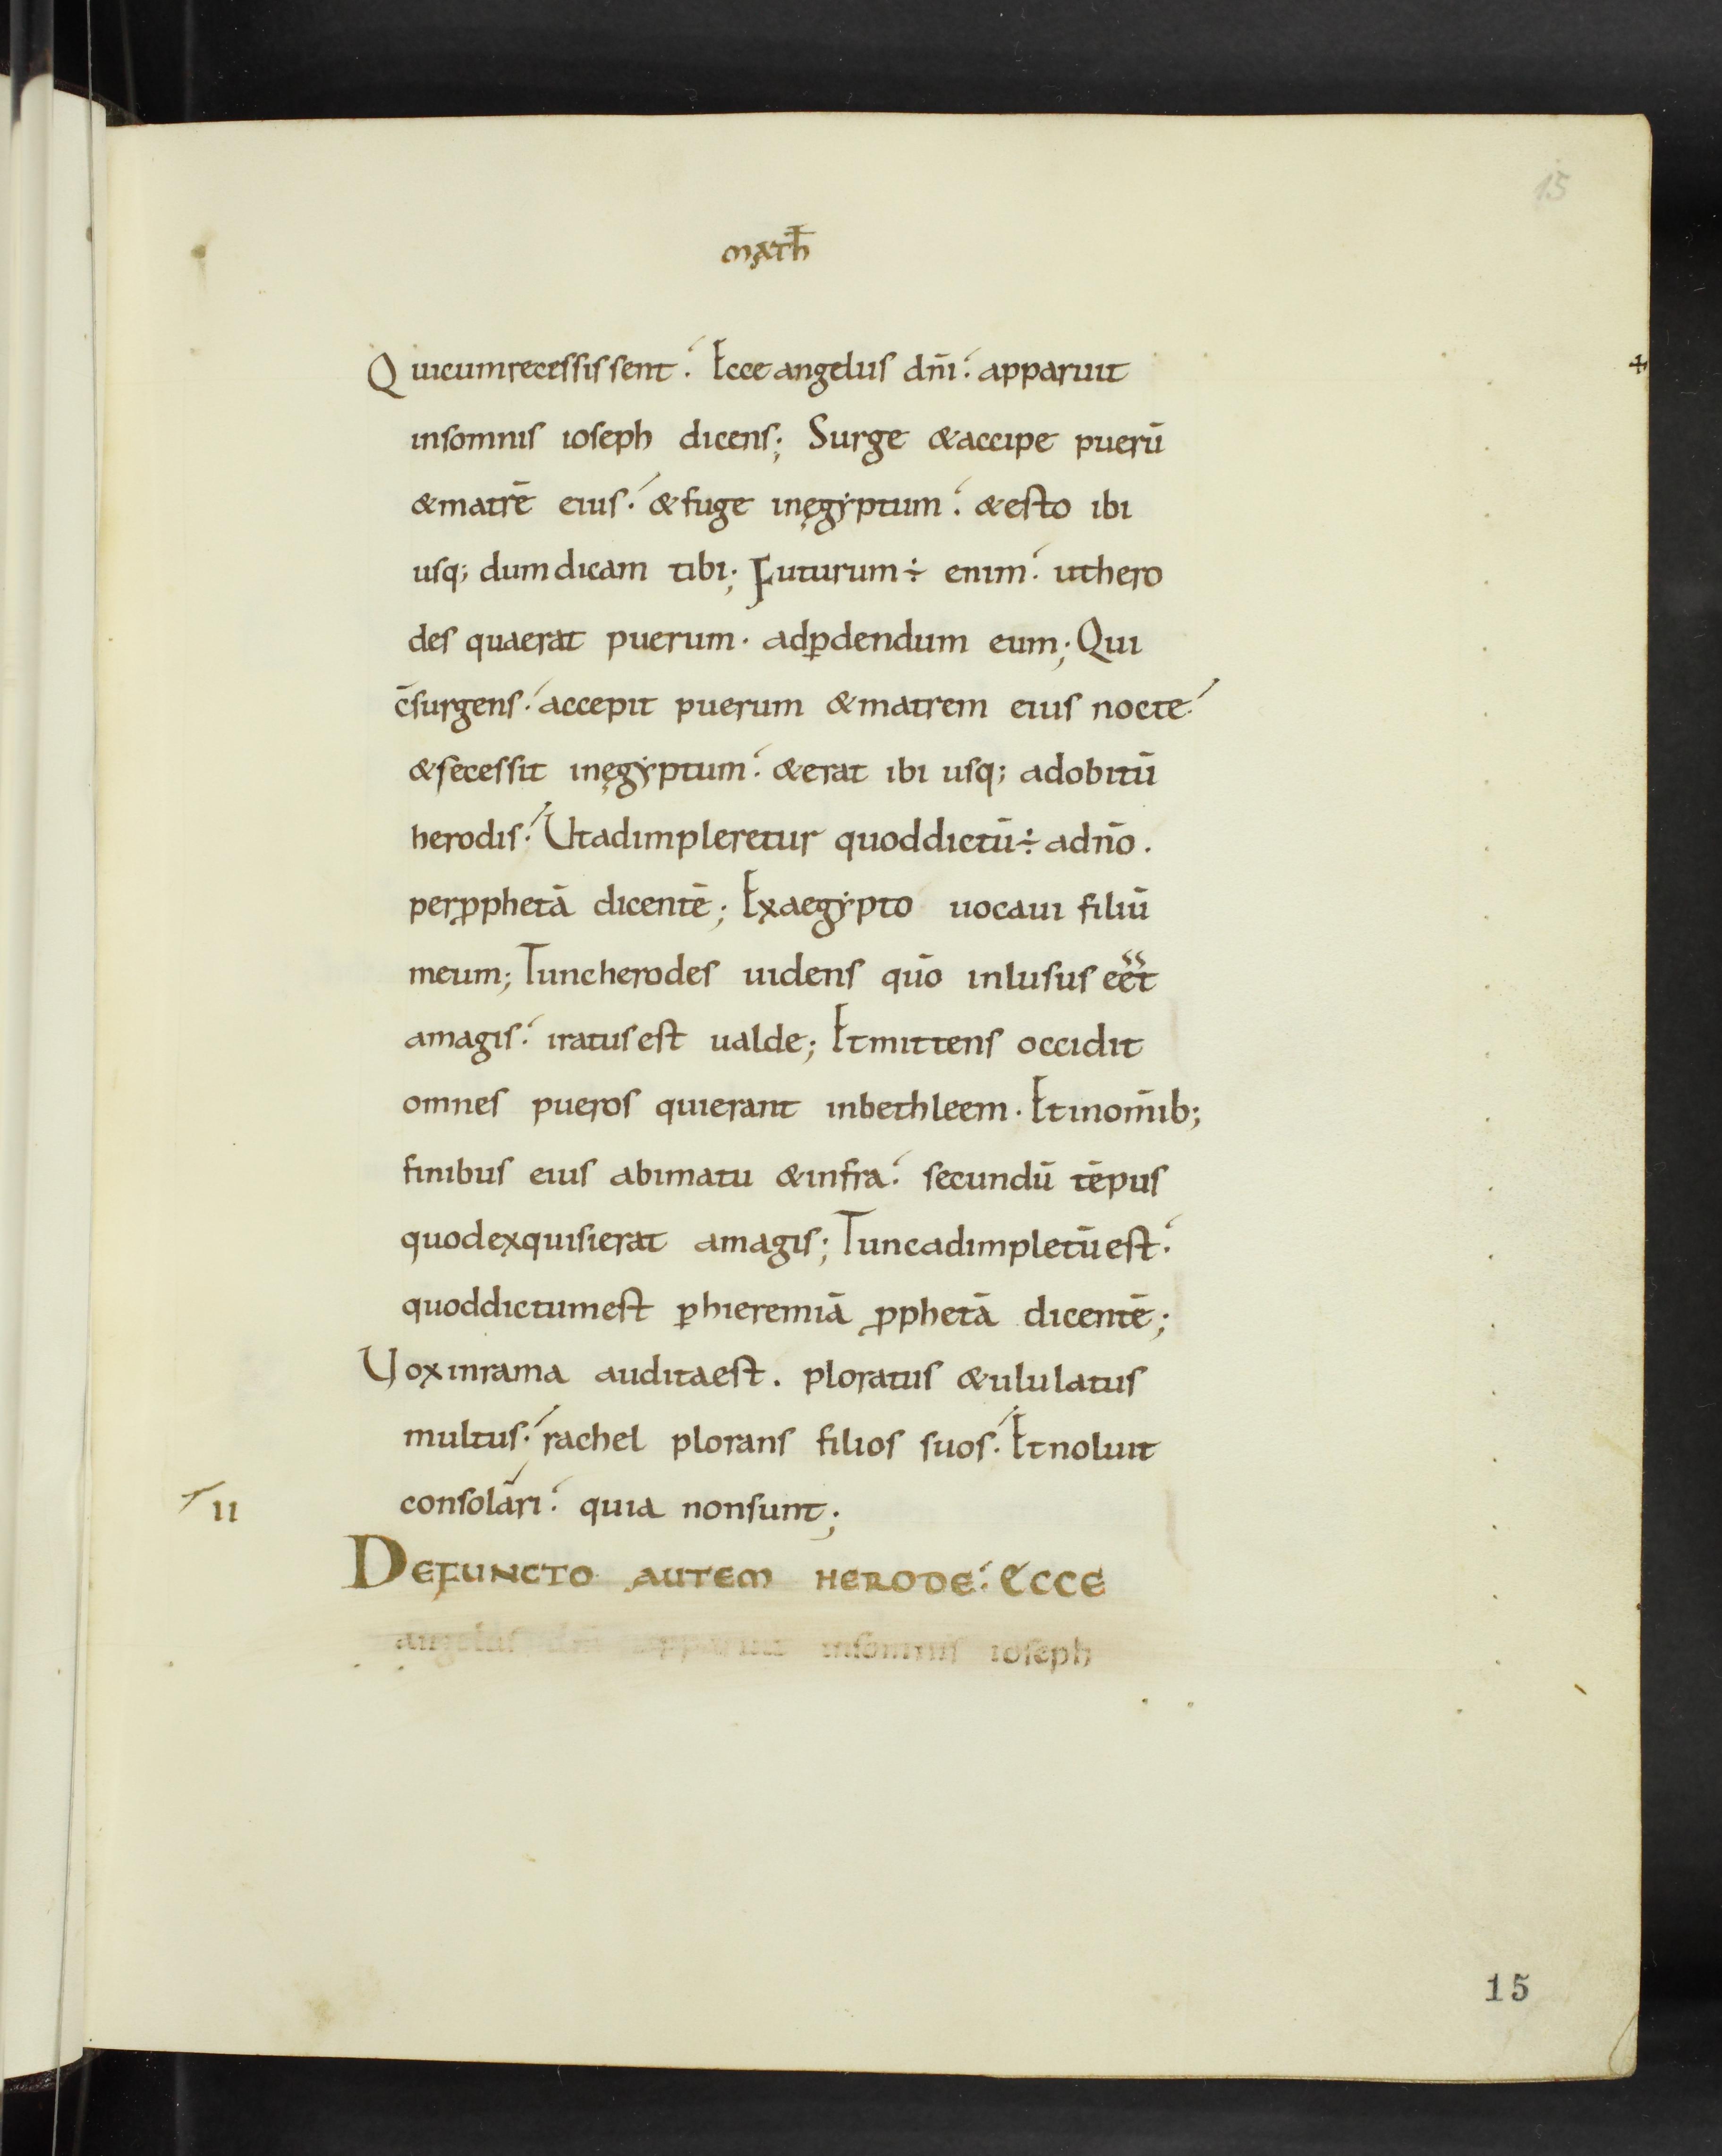 15
math̄
Quicumrecessissent. Ecce angelus dn̄i. apparuit
insomnis ioseph dicens; Surge &accipe puerū
&matrē eius. &fuge inęgẏptum. &esto ibi
usq; dumdicam tibi; Futurum÷ enim. uthero
des quaerat puerum. adꝑdendum eum; Qui
c̄surgens. accepit puerum &matrem eius nocte.
&secessit inęgẏptum. &erat ibi usq; adobitū
herodis. Utadimpleretur quoddictū÷ adn̄o.
perꝓphetā dicentē; Exaegẏpto uocaui filiū
meum; Tuncherodes uidens quō inlusus eēt
amagis. iratusest ualde; Etmittens occidit
omnes pueros quierant inbethleem. Etinom̄ib;
finibus eius abimatu &infra. secundū tēpus
quodexquisierat amagis; Tuncadimpletūest.
quoddictumest ꝑhieremiā ꝓphetā dicentē;
Uoxinrama auditaest. ploratus &ululatus
multus. rachel plorans filios suos. Etnoluit
consolari. quia nonsunt;
II
DEFUNCTO AUTEM HERODE. ECCE
angelus dn̄i apparuit insomnis ioseph
15